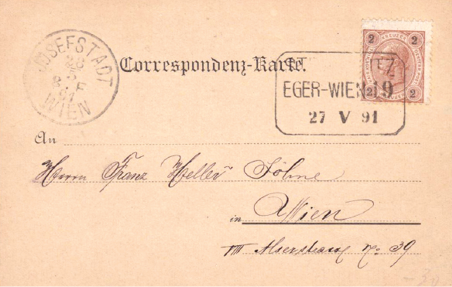 JOSEFSTADT
WIEN
Correspondenz-Karte.
2 2
2
EGER-WIEN 19
27 V 91
An
Herrn Franz Heller Söhne
in Wien
VIII Alserstrasse No. 39